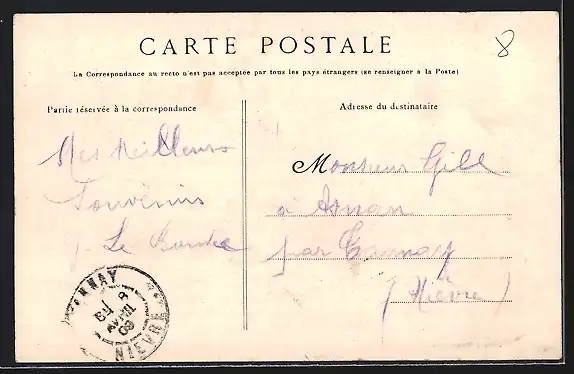 CARTE POSTALE
8
La Correspondance au recto n'est pas acceptée par tous les pays étrangers (se renseigner à la Poste)
Partie réservée à la correspondance
Adresse du destinataire
Mes Meilleurs
Souvenirs
Monsieur Gill
à Asnan
par Tannay
(Nièvre)
NNAY
8
AVRIL
09
NIEVRE